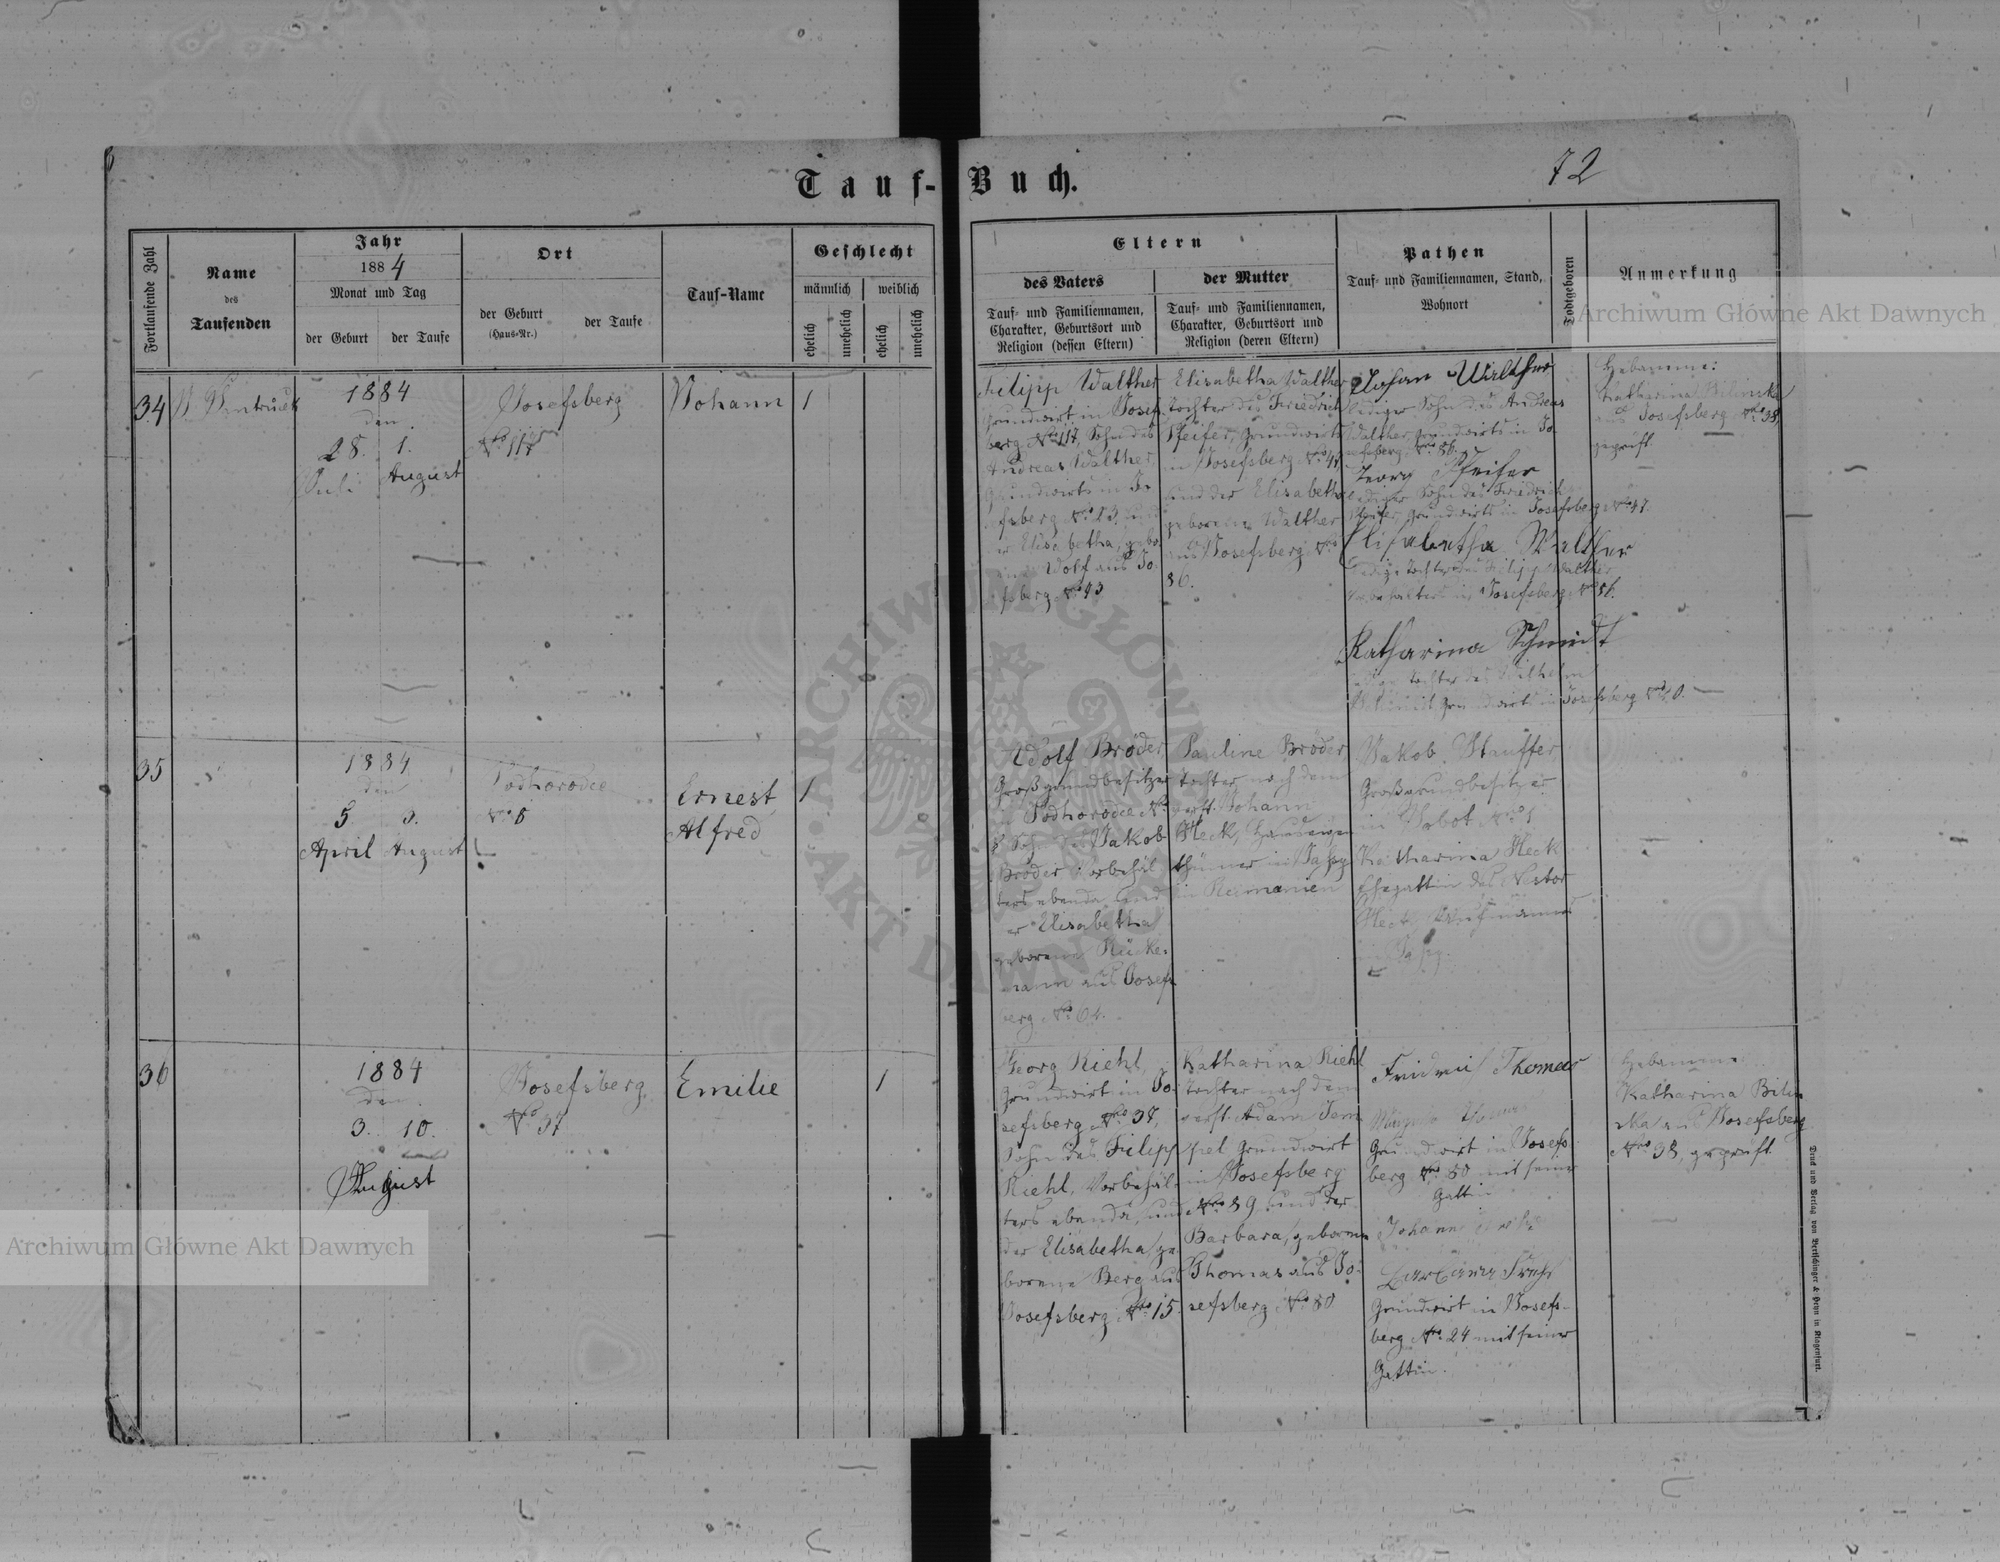 Tauf-Buch.
72
Fortlaufende Zahl
Name
des
Taufenden
Jahr
1884
Monat und Tag
der Geburt
der Taufe
Ort
der Geburt
(Haus-Nr.)
der Taufe
Tauf-Name
Geschlecht
männlich
weiblich
ehelich
unehelich
ehelich
unehelich
Eltern
des Vaters
Tauf- und Familiennamen,
Charakter, Geburtsort und
Religion (dessen Eltern)
der Mutter
Tauf- und Familiennamen,
Charakter, Geburtsort und
Religion (deren Eltern)
Pathen
Tauf- und Familiennamen, Stand,
Wohnort
Todtgeboren
Anmerkung
34
1884
den
28. 1.
Juli August
Josefsberg
Nro 117
Johann
1
Filipp Walther
Grundwirt in Josefs-
berg Nro 117, Sohn des
Andreas Walther,
Grundwirts in Jo-
sefsberg Nro 23,
Elisabetha, gebo-
Wolf aus Jo-
sefsberg Nro 93
Elisabetha Walther
Tochter des Friedrich
Pfeifer, Grundwirts
in Josefsberg Nro 47,
und der Elisabetha
geborene Walther
aus Josefsberg Nro
86.
Johan Walther
lediger Sohn des Andreas
Walther, Grundwirts in Jo-
sefsberg Nro 86.
Georg Pfeifer
lediger Sohn des Friedrich
Pfeifer, Grundwirts in Josefsberg Nro 47.
Elisabetha Walther
ledige Tochter des Filipp Walther
Vorbehälters in Josefsberg Nro 86.
Katharina Schmidt
ledige Tochter des Wilhelm
Schmidt Grundwirts in Josefsberg
Hebamme:
Katharina Bilinska
aus Josefsberg Nro 38,
geprüft.
35
1884
den
5. 3.
April August
Podhorodce
Nro 8
Ernest
Alfred
1
Adolf Bröder
Großgrundbesitzer
Podhorodce Nro
8 Sohn des Jakob
Bröder Vorbehäl-
ters ebenda und
der Elisabetha
geborene Rücke-
mann aus Josefs-
berg Nro 64.
Pauline Bröder
Tochter nach dem
verst. Johann
Heck, Hauseigen-
thümer in Jassy
in Rumänien
Jakob Stauffer
Großgrundbesitzer
in
Katharina Heck
Ehegattin des Nestor
Heck Kaufmannes
in Jassy.
36
1884
den
3. 10.
August
Josefsberg
Nro 37
Emilie
1
Georg Riehl,
Grundwirt in Jo-
sefsberg Nro 37,
Sohn des Filipp
Riehl, Vorbehäl-
ters ebenda, und
der Elisabetha, ge-
borene Berg aus
Josefsberg Nro 15.
Katharina Riehl
Tochter nach dem
verst. Adam Tem-
pel Grundwirt
in Josefsberg
Nro 89 und der
Barbara, geborene
Thomas aus Jo-
sefsberg Nro 80
Thomas
Grundwirt in Josefs-
berg Nro 80 mit seiner
Gattin
Johann
Grundwirt in Josefs-
berg Nro 24 mit seiner
Gattin.
Hebamme
Katharina Bilin-
ska aus Josefsberg
Nro 38, geprüft.
Druck und Verlag von Bertschinger & Heyn in Klagenfurt.
Archiwum Główne Akt Dawnych
Archiwum Główne Akt Dawnych
ARCHIWUM GŁÓWNE
AKT DAWNYCH